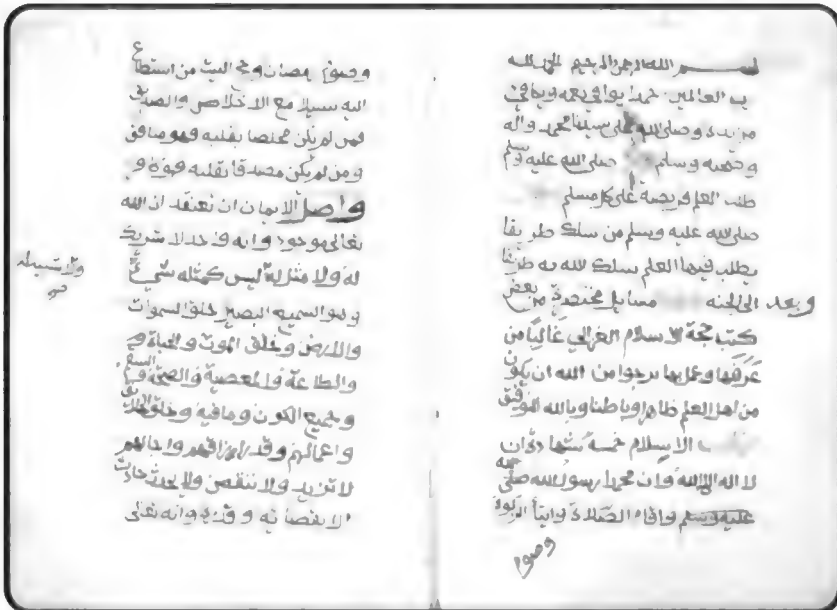 بسم الله الرحمن الرحيم الحمد لله
رب العالمين حمدا يوافي نعمه ويكافئ
مزيده وصلى الله على سيدنا محمد واله
وصحبه وسلم صلى الله عليه وسلم
طلب العلم فريضة على كل مسلم
صلى الله عليه وسلم من سلك طريقا
يطلب فيها العلم سلك الله به طريقا
الى الجنه وبعد مسايل مختصرة من بعض
كتب حجة الاسلام الغزالي غالبا من
عرفها وعمل بها يرجوا من الله ان يكون
من اهل العلم ظاهرا وباطنا وبالله التوفيق
الاسلام خمسة شهادة ان
لا اله الا الله وان محمدا رسول الله صلى
عليه وسلم واقام الصلاة وايتا الزكوة
وصوم
وصوم رمضان وحج البيت من استطاع
اليه سبيلا مع الاخلاص والصدق
فمن لم يكن مخلصا بقلبه فهو منافق
ومن لم يكن مصدقا بقلبه فهو
واصل الايمان ان تعتقد ان الله
تعالى موجود وانه واحد لا شريك
له ولا مثل له ليس كمثله شيء
ولا شبيه له
وهو السميع البصير خلق السموات
والارض وخلق الموت والحياة
والطاعة والمعصية والصحة والسقم
وجميع الكون وما فيه وخلق الخلايق
واعمالهم وقدر ارزاقهم واجالهم
لا تزيد ولا تنقص ولا يحدث حادث
الا بقضائه وقدره وانه تعالى